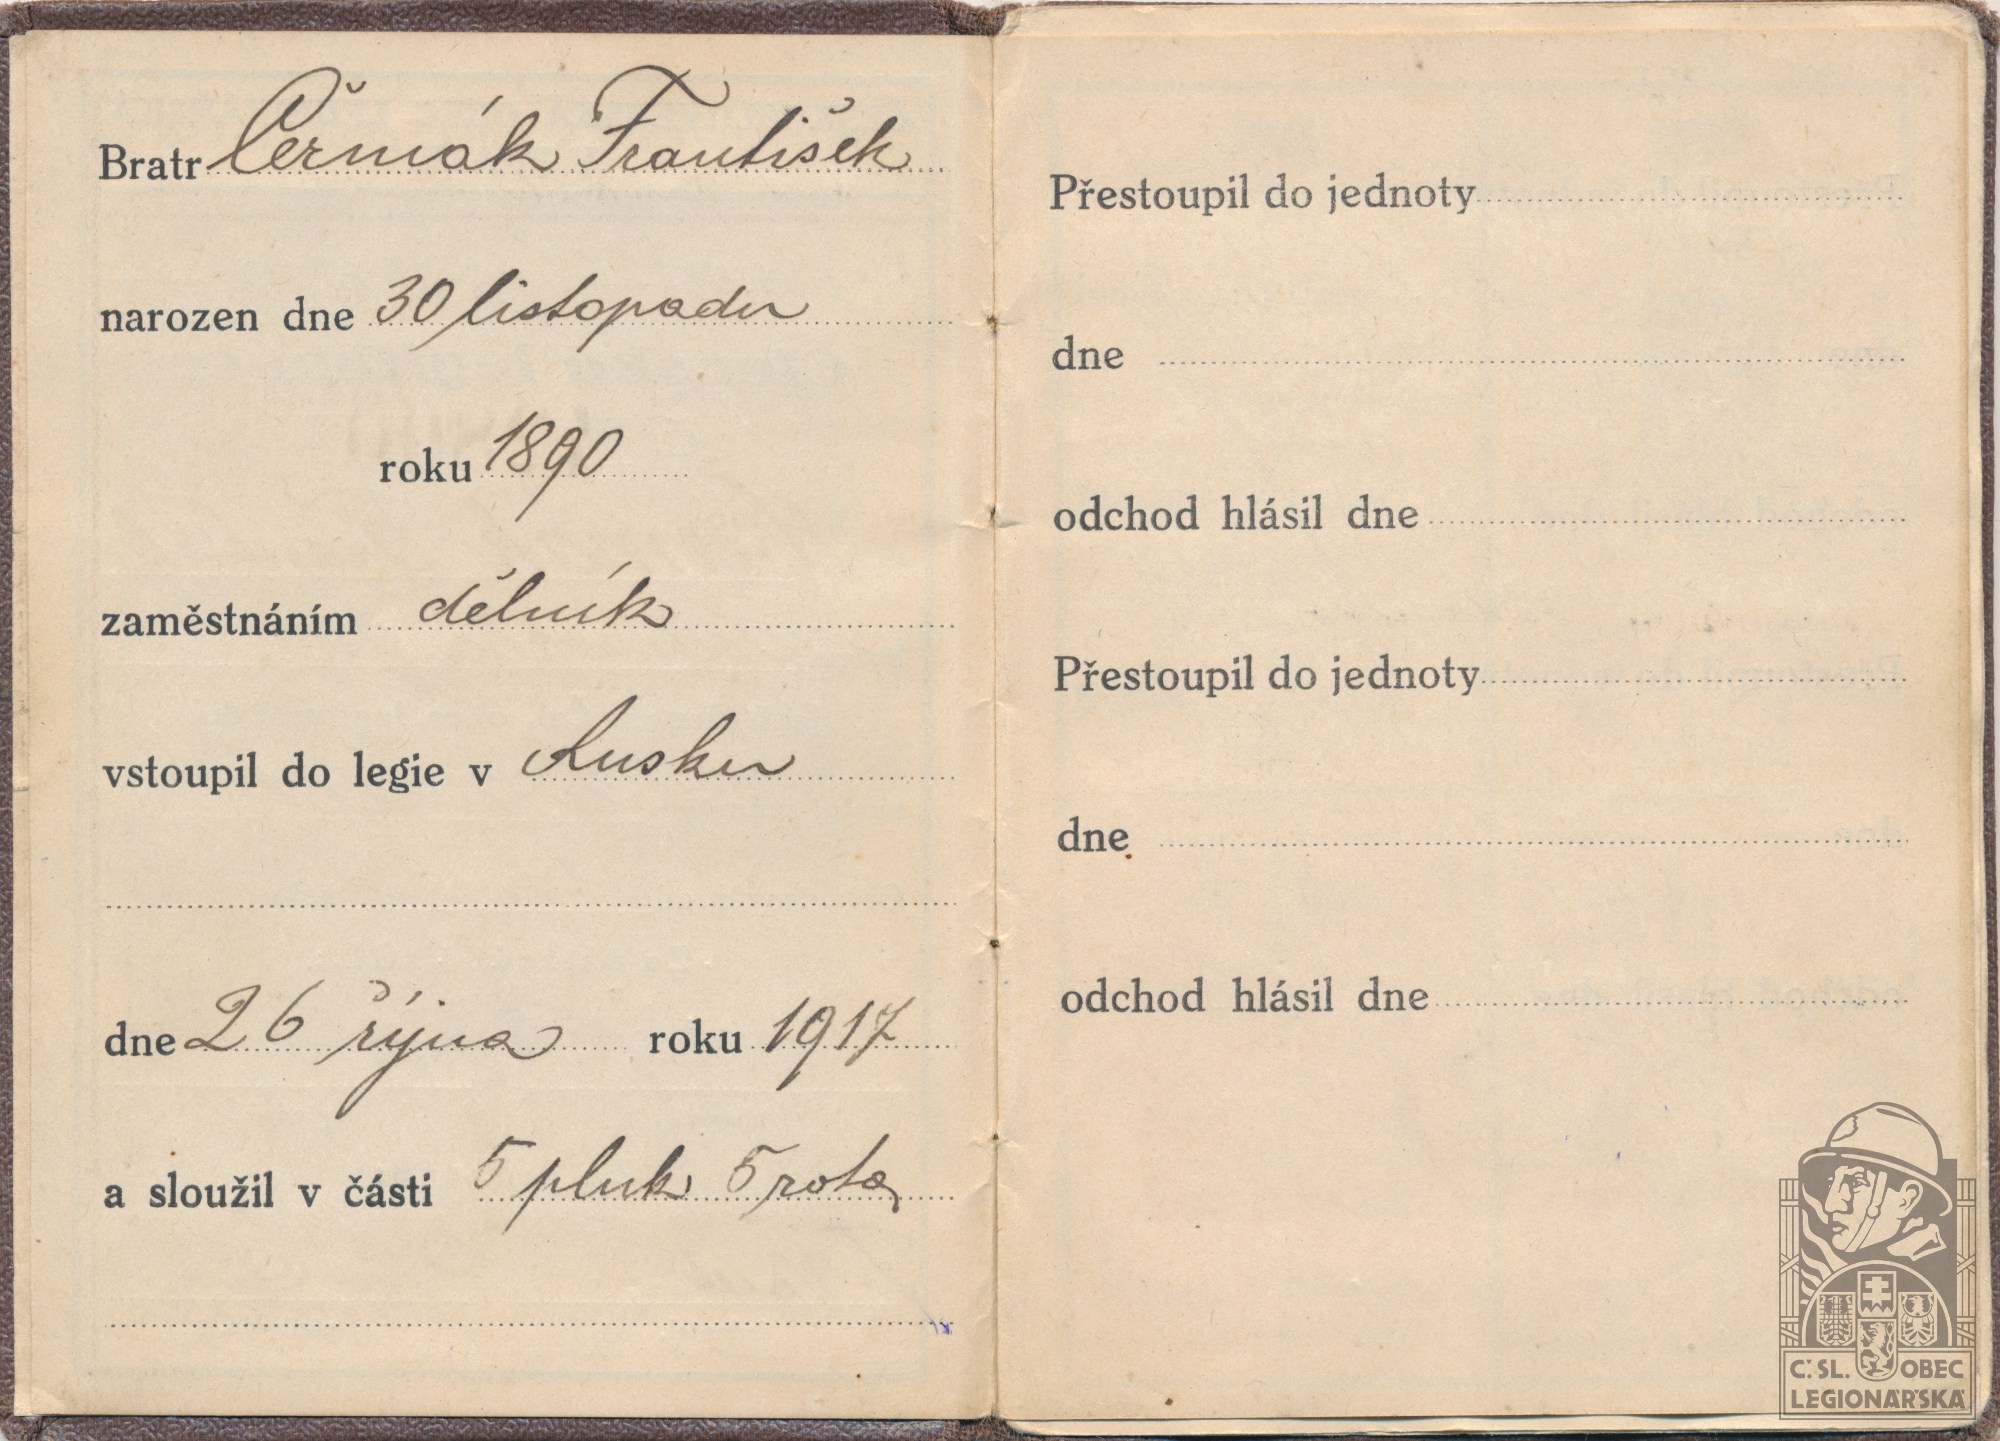 Bratr Čermák František
narozen dne 30 listopadu
roku 1890
zaměstnáním dělník
vstoupil do legie v Rusku
dne 26 října roku 1917
a sloužil v části 5 pluk 5 rota
Přestoupil do jednoty
dne
odchod hlásil dne
Přestoupil do jednoty
dne
odchod hlásil dne
Č. SL. OBEC
LEGIONÁŘSKÁ